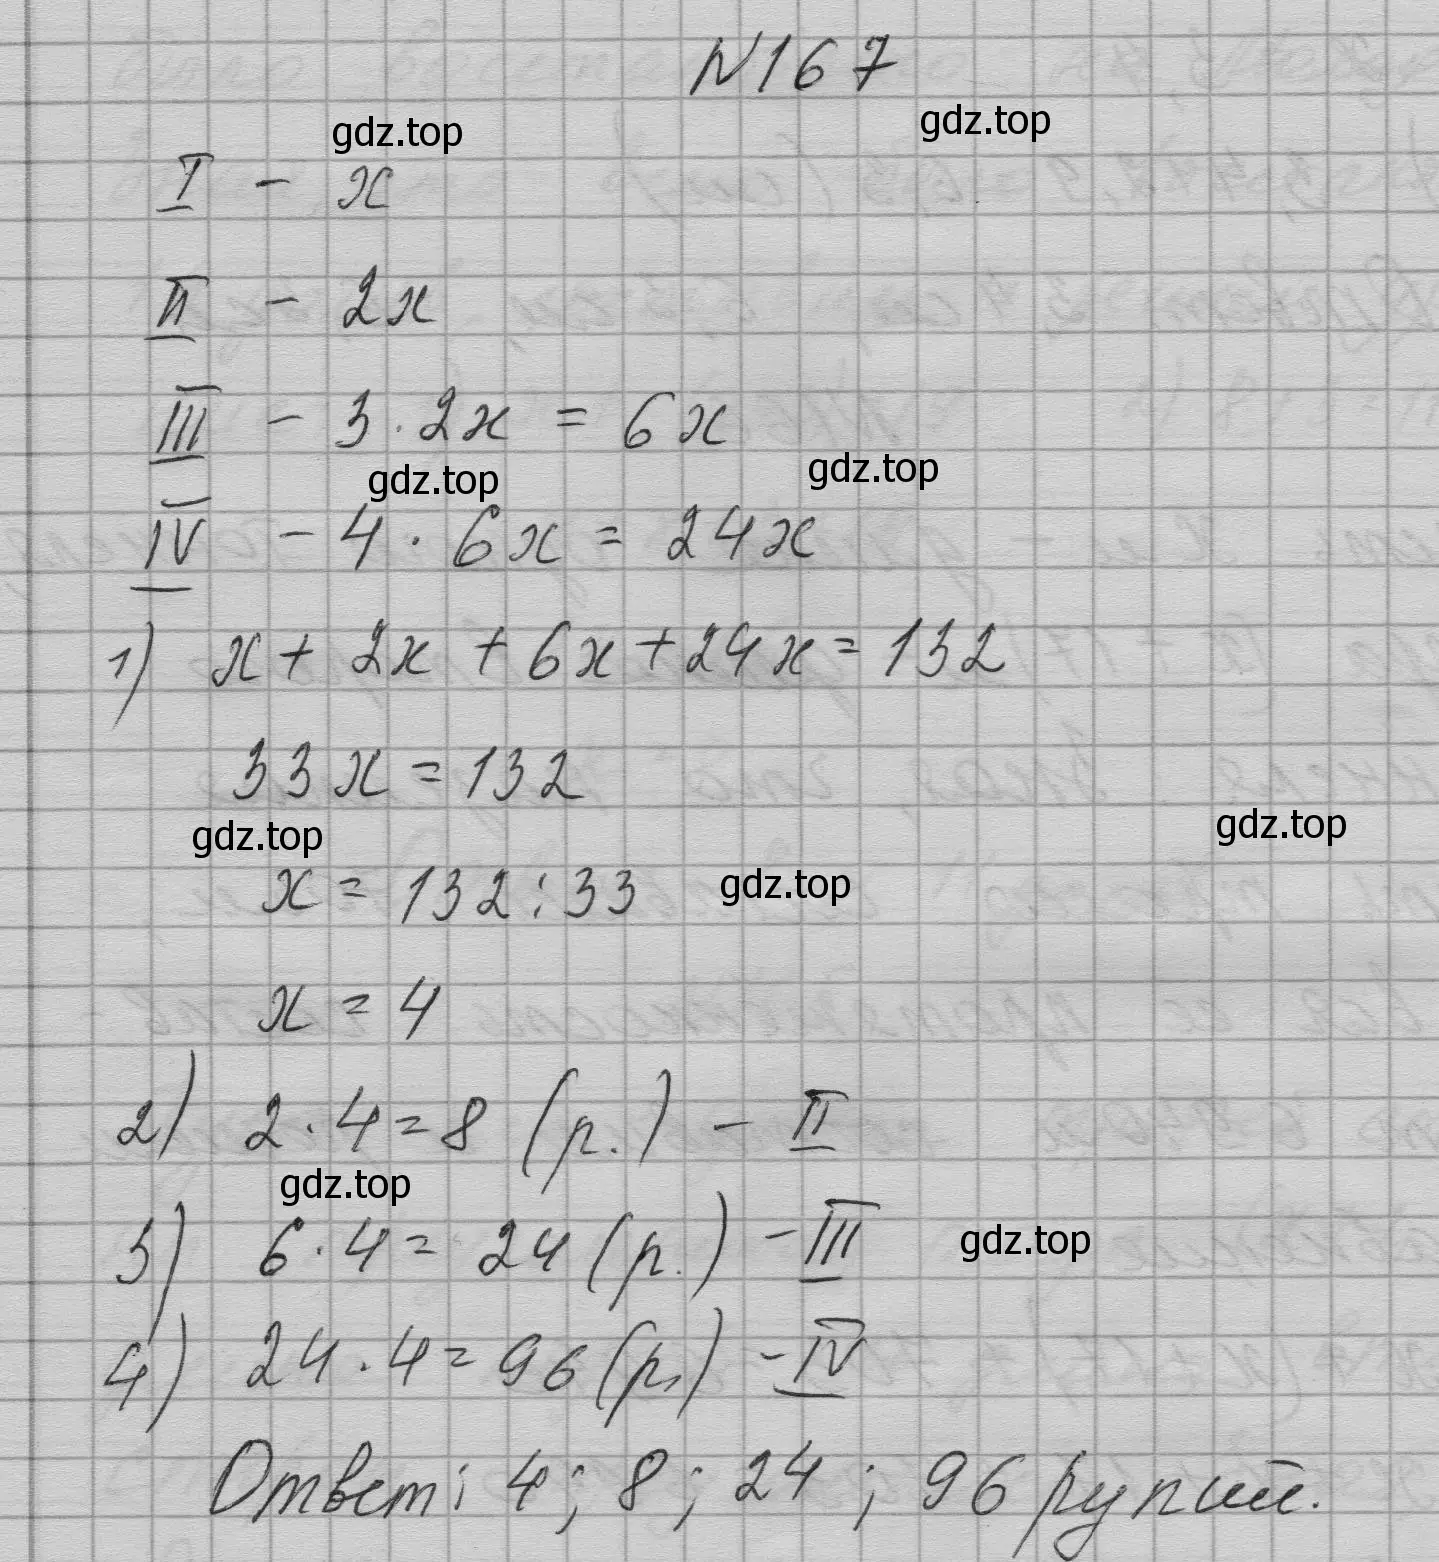 N167
gdz.top
gdz.top
I - x
II - 2x
III - 3·2x = 6x
gdz.top
gdz.top
IV - 4·6x = 24x
1) x + 2x + 6x + 24x = 132
33x = 132
gdz.top
gdz.top
x = 132:33
gdz.top
x = 4
2) 2·4 = 8 (р.) - II
gdz.top
3) 6·4 = 24 (р.) - III
gdz.top
4) 24·4 = 96 (р.) - IV
Ответ: 4; 8; 24; 96 рупий.